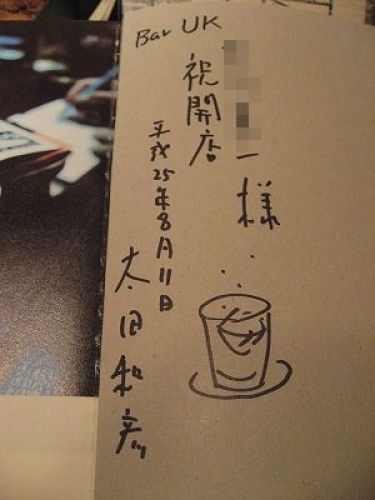 Bar UK
一様
祝開店
平成25年8月11日
太田和彦